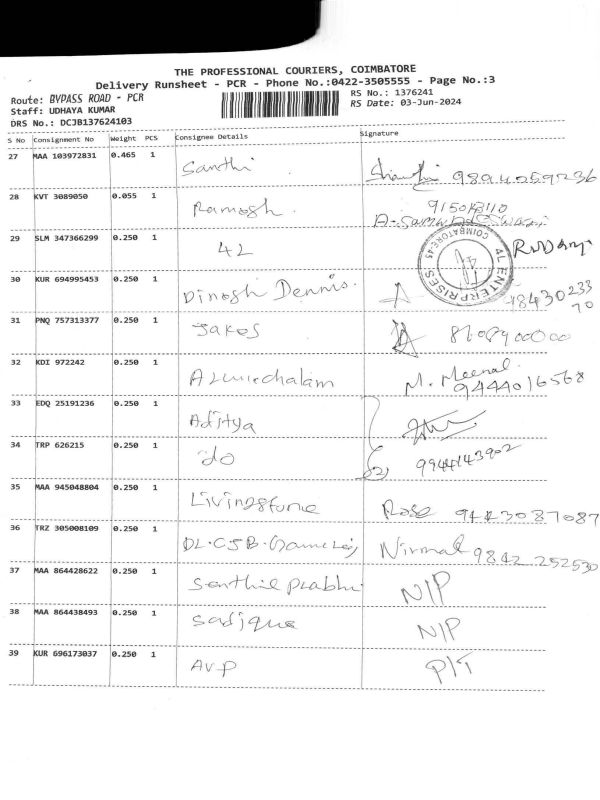 THE PROFESSIONAL COURIERS, COIMBATORE
Delivery Runsheet - PCR - Phone No.:0422-3505555 - Page No.:3
Route: BYPASS ROAD - PCR
RS No.: 1376241
Staff: UDHAYA KUMAR
RS Date: 03-Jun-2024
DRS No.: DCJB137624103
S No Consignment No Weight PCS Consignee Details Signature
27 MAA 103972831 0.465 1 Santhi 9894059236
28 KVT 3089050 0.055 1 Ramesh.
29 SLM 347366299 0.250 1 4L
4L ENTERPRISES COIMBATORE-45
30 KUR 694995453 0.250 1 Dinesh Dennis. 9843023370
31 PNQ 757313377 0.250 1
32 KDI 972242 0.250 1 M. Meenal. 9444016568
33 EDQ 25191236 0.250 1 Aditya
34 TRP 626215 0.250 1 do (2) 9944143902
35 MAA 945048804 0.250 1 Livingstone Rose 9443087087
36 TRZ 305008109 0.250 1 Nirmal 9842 252530
37 MAA 864428622 0.250 1 Senthil Prabhu N/P
38 MAA 864438493 0.250 1 Sadique N/P
39 KUR 696173037 0.250 1 Avp P/T